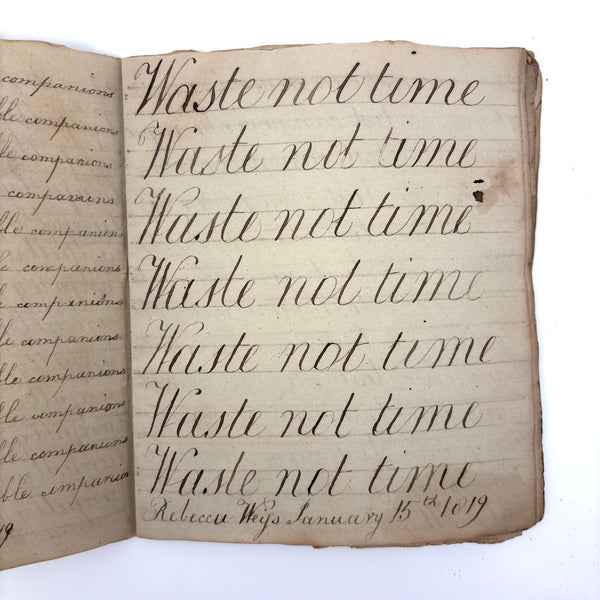 companions
le companions
le companions
companions
le companions
companions
companions
le companions
le companions
ble companions
ble companions
ble companions
19
Waste not time
Waste not time
Waste not time
Waste not time
Waste not time
Waste not time
Waste not time
Rebecca Weiſs January 15th 1819